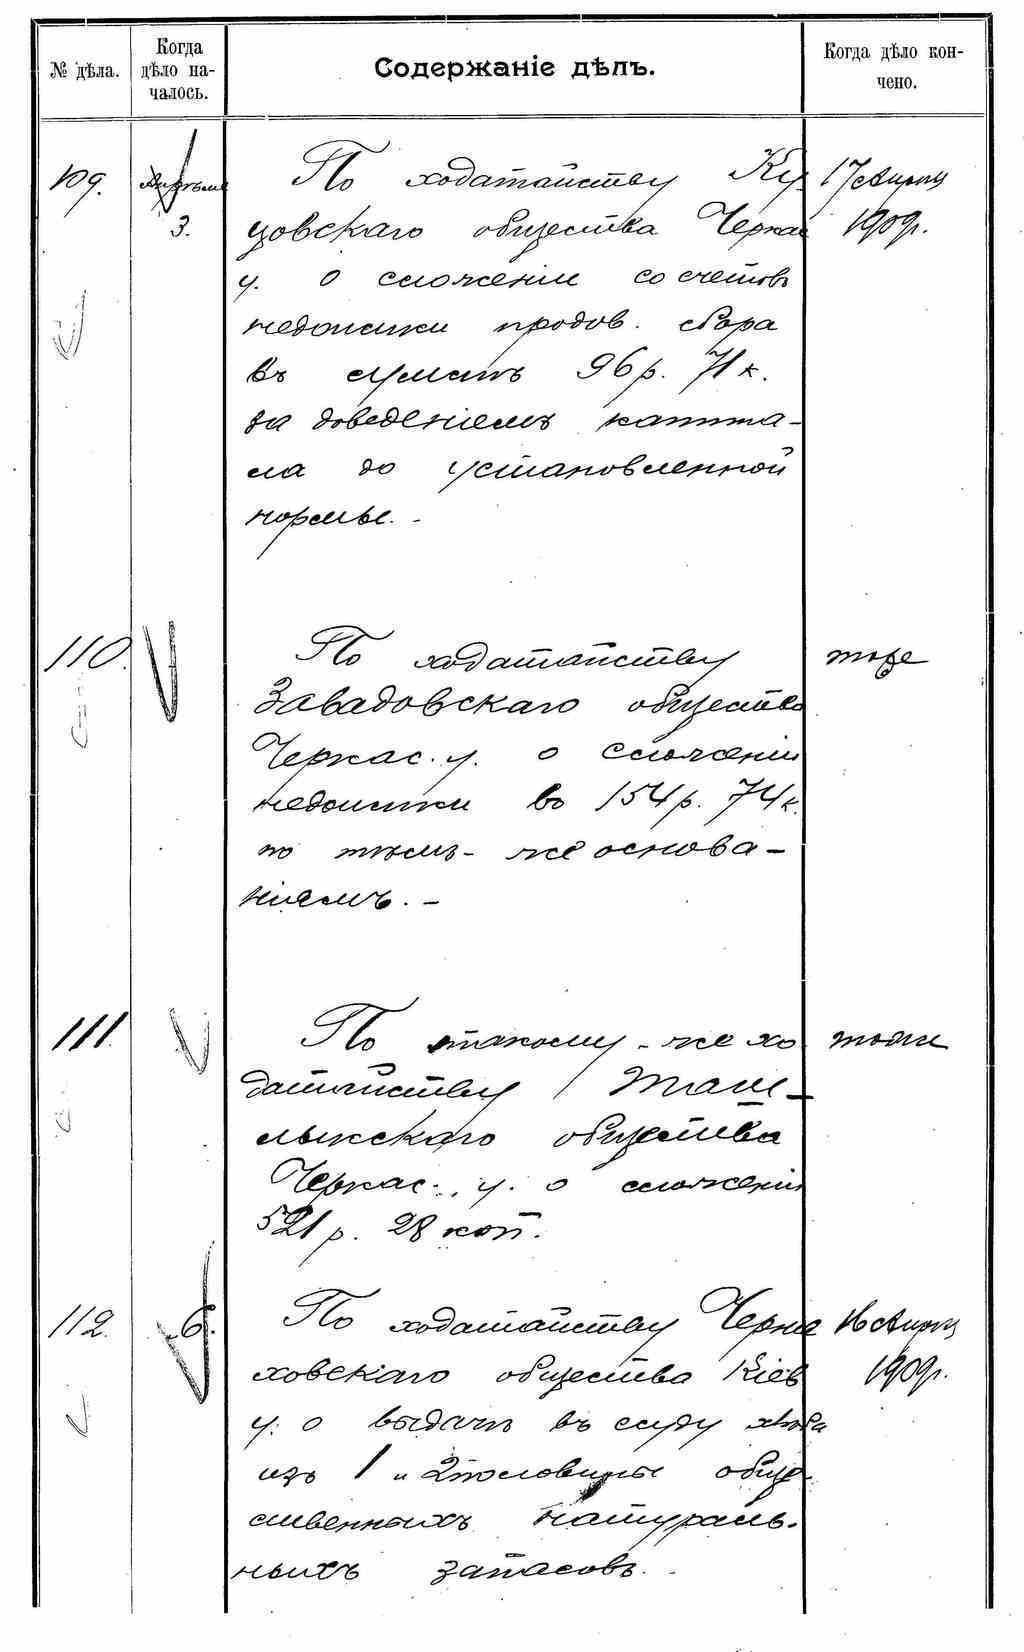 № дѣла.
Когда
дѣло на-
чалось.
Содержаніе дѣлъ.
Когда дѣло кон-
чено.
109.
3.
По ходатайству Ку
цовскаго общества Черкас
у. о сложеніи со счетовъ
недоимки продов. сбора
въ суммѣ 96 р. 71 к.
за доведеніемъ капита-
ла до установленной
нормы. -
17 Апрѣля
1909г.
110.
По ходатайству
Завадовскаго общества
Черкас. у. о сложеніи
недоимки во 154 р. 74 к.
по тѣмъ-же основа-
ніямъ. -
тоже
111.
По такому-же хо
датайству Таш-
лыкскаго общества
Черкас. у. о сложеніи
521 р. 28 коп.
тоже
112.
6.
По ходатайству Черня
ховскаго общества Кіев
у. о выдачѣ въ ссуду хлѣба
изъ 1 и 2 половины обще-
ственныхъ натураль-
ныхъ запасовъ.
16 Апрѣля
1909г.